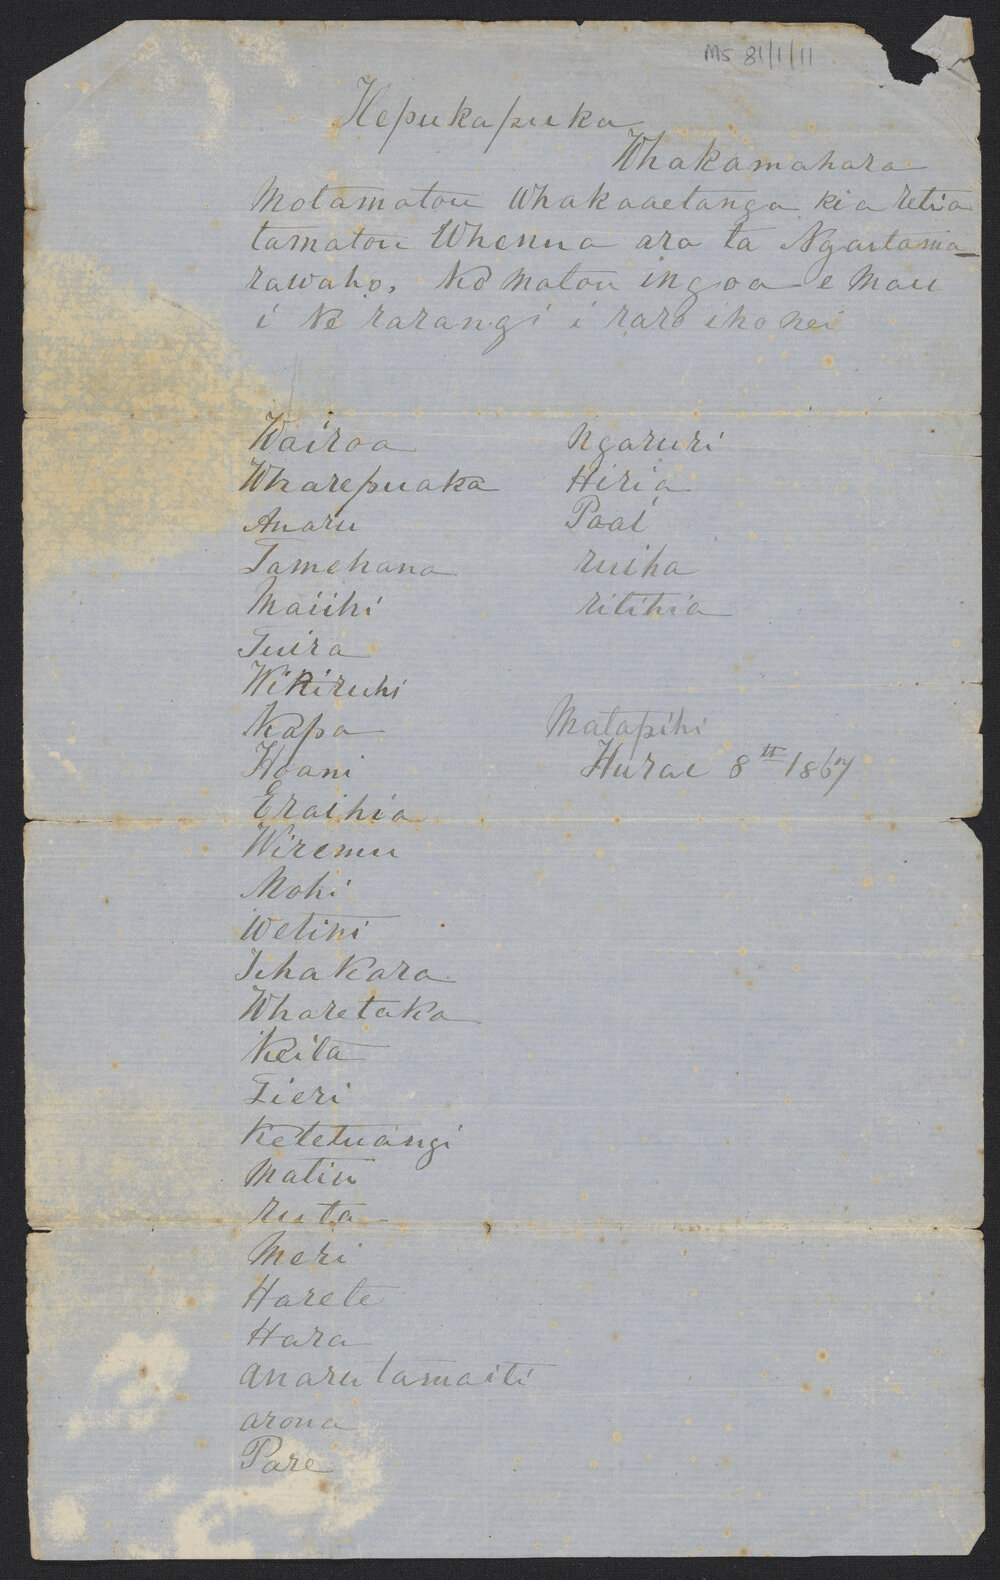 MS 81/1/11
Hepukapuka
Whakamahara
Motamatou Whakaaetanga kia retia
tamatou Whenua ara ta Ngaitama-
rawaho, Ko matou ingoa e mau
i Ne rarangi i raro iho nei
Wairoa
Wharepuaka
Anaru
Tamehana
Maiihi
Tuira
Wikiruhi
Kapa
Hoani
Eraihia
Wiremu
Mohi
Wetini
Ihakara
Wharetaka
Keita
Tieri
Ketetuangi
Matiu
ruta
Meri
Harete
Hara
anaru tamaiti
arona
Pare
Ngaruri
Hiria
Paai
ruiha
ritihia
Matapihi
Hurae 8th 1867